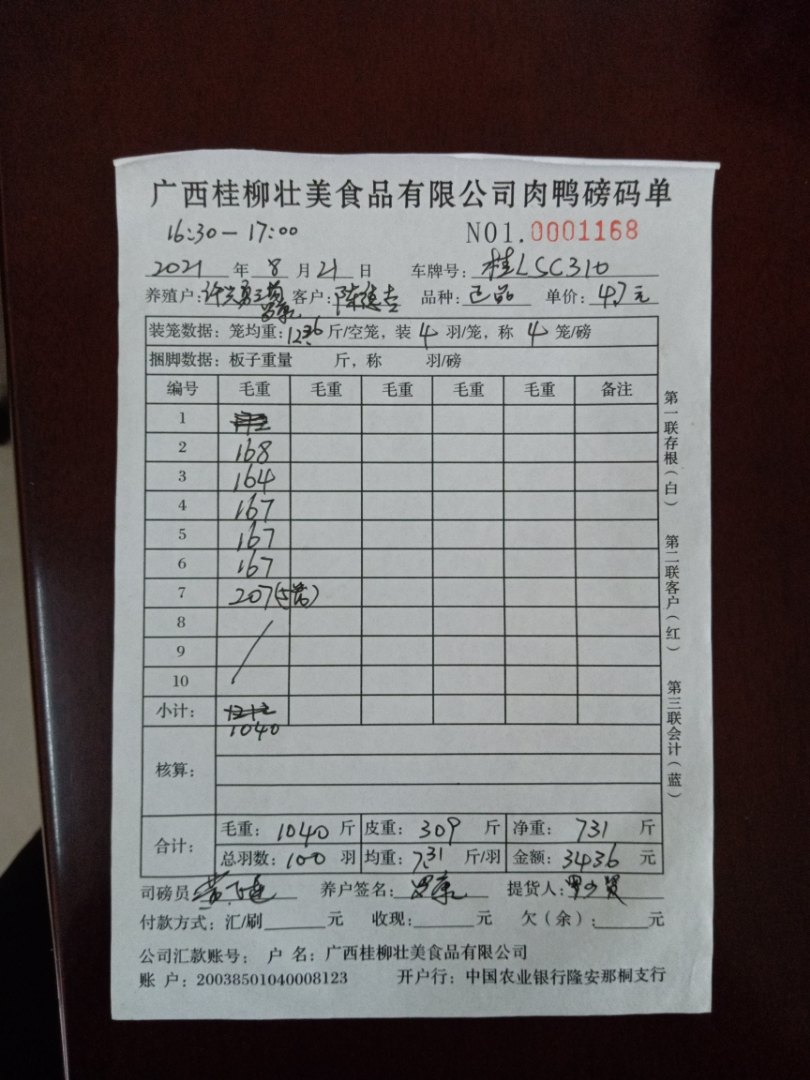 广西桂柳壮美食品有限公司肉鸭磅码单
16:30-17:00 NO1.0001168
2021年8月21日 车牌号:桂LSC310
养殖户: 客户:陈德 品种:正品 单价:4.7元
装笼数据:笼均重:12.36斤/空笼,装4羽/笼,称4笼/磅
捆脚数据:板子重量 斤,称 羽/磅
编号 毛重 毛重 毛重 毛重 毛重 备注
1
2 168
3 164
4 167
5 167
6 167
7 207(5笼)
8
9
10
小计: 1040
核算:
合计: 毛重:1040斤 皮重:309斤 净重:731斤
总羽数:100羽 均重:7.31斤/羽 金额:3436元
司磅员: 养户签名:罗康 提货人:
付款方式:汇/刷 元 收现: 元 欠(余): 元
公司汇款账号: 户 名:广西桂柳壮美食品有限公司
账 户:20038501040008123 开户行:中国农业银行隆安那桐支行
第一联存根(白)
第二联客户(红)
第三联会计(蓝)